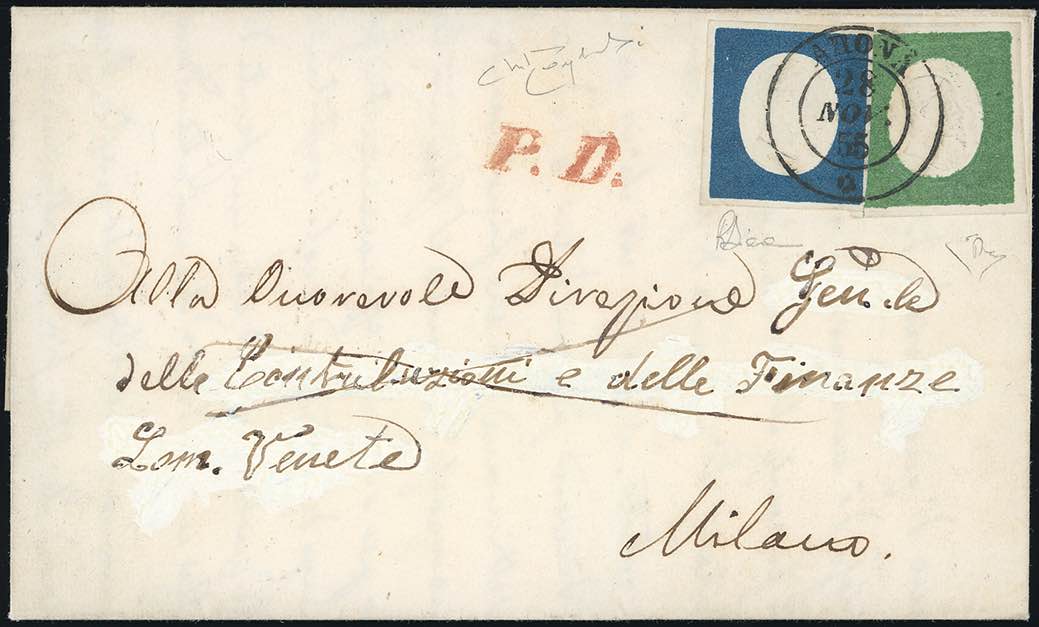 P. D.
AROVA
28
NOV.
55
Alla Onorevole Direzione Gen.le
delle Contribuzioni e delle Finanze
Lom. Venete
Milano.